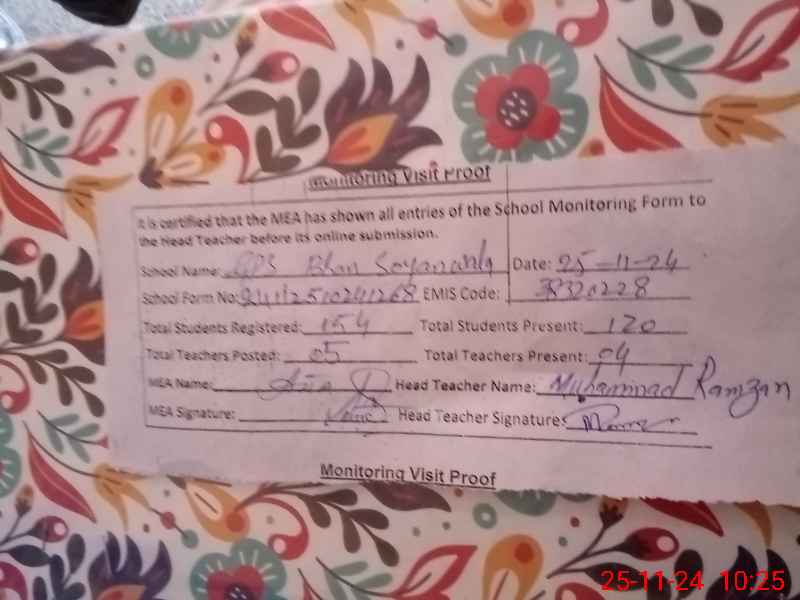 Monitoring Visit Proof
It is certified that the MEA has shown all entries of the School Monitoring Form to
the Head Teacher before its online submission.
School Name: GPS Bhan Date: 25-11-24
School Form No: EMIS Code: 38320228
Total Students Registered: 154 Total Students Present: 120
Total Teachers Posted: 05 Total Teachers Present: 04
MEA Name: Head Teacher Name: Muhammad Ramzan
MEA Signature: Head Teacher Signature:
Monitoring Visit Proof
25-11-24 10:25